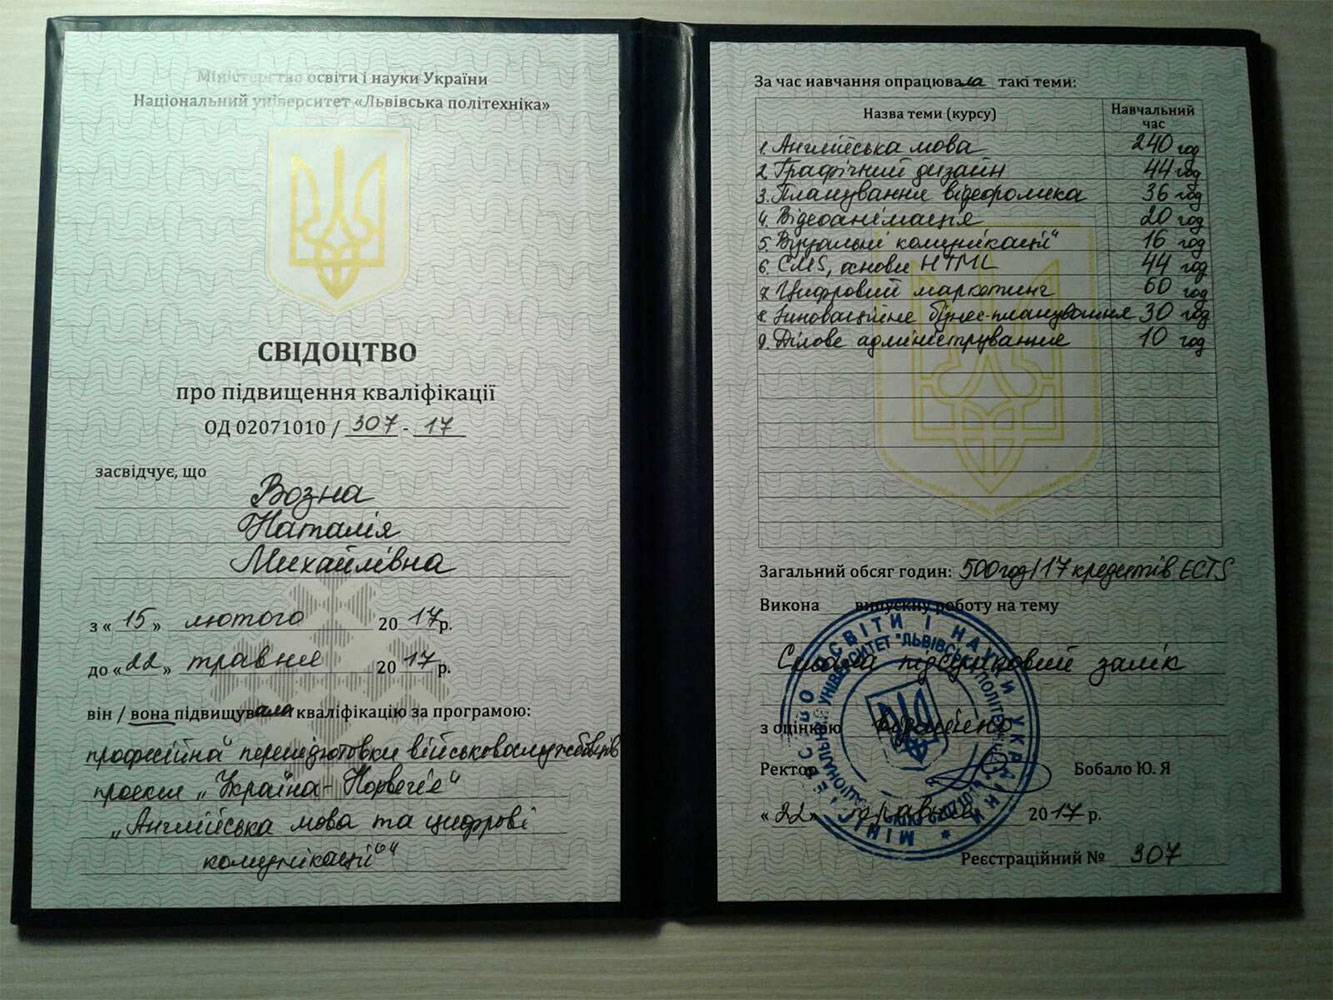 Міністерство освіти і науки України
Національний університет «Львівська політехніка»
СВІДОЦТВО
про підвищення кваліфікації
ОД 02071010 / 307 - 17
засвідчує, що
Возна
Наталія
Михайлівна
з « 15 » лютого 2017р.
до «22» травня 2017р.
він / вона підвищувала кваліфікацію за програмою:
професійна перепідготовки військовослужбовців
проекту „Україна-Норвегія"
„Англійська мова та цифрові
комунікації"
За час навчання опрацювала такі теми:
Назва теми (курсу) Навчальний
час
1. Англійська мова 240 год
2. Графічний дизайн 44 год
3. Планування відеоролика 36 год
4. Відеоанімація 20 год
5. Візуальні комунікації" 16 год
6. CMS, основи HTML 44 год
7. Цифровий маркетинг 60 год
8. Інноваційне бізнес-планування 30 год
9. Ділове адміністрування 10 год
Загальний обсяг годин: 500год/17 кредитів ECTS
Викона випускну роботу на тему
Склала підсумковий залік
з оцінкою відмінно
Ректор Бобало Ю. Я
«22» травня 2017 р.
Реєстраційний № 307
МІНІСТЕРСТВО ОСВІТИ І НАУКИ УКРАЇНИ
НАЦІОНАЛЬНИЙ УНІВЕРСИТЕТ "ЛЬВІВСЬКА ПОЛІТЕХНІКА"